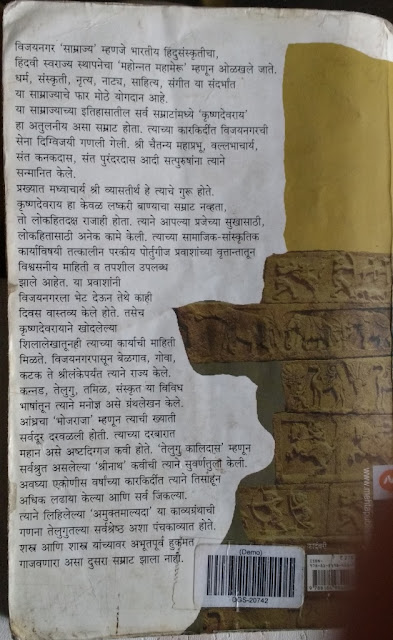 विजयनगर 'साम्राज्य' म्हणजे भारतीय हिंदुसंस्कृतीचा,
हिंदवी स्वराज्य स्थापनेचा 'महोन्नत महामेरू' म्हणून ओळखले जाते.
धर्म, संस्कृती, नृत्य, नाट्य, साहित्य, संगीत या संदर्भात
या साम्राज्याचे फार मोठे योगदान आहे.
या साम्राज्याच्या इतिहासातील सर्व सम्राटांमध्ये 'कृष्णदेवराय'
हा अतुलनीय असा सम्राट होता. त्याच्या कारकिर्दीत विजयनगरची
सेना दिग्विजयी गणली गेली. श्री चैतन्य महाप्रभू, वल्लभाचार्य,
संत कनकदास, संत पुरंदरदास आदी सत्पुरुषांना त्याने
सन्मानित केले.
प्रख्यात मध्वाचार्य श्री व्यासतीर्थ हे त्याचे गुरू होते.
कृष्णदेवराय हा केवळ लष्करी बाण्याचा सम्राट नव्हता,
तो लोकहितदक्ष राजाही होता. त्याने आपल्या प्रजेच्या सुखासाठी,
लोकहितासाठी अनेक कामे केली. त्याच्या सामाजिक-सांस्कृतिक
कार्याविषयी तत्कालीन परकीय पोर्तुगीज प्रवाशांच्या वृत्तान्तातून
विश्वसनीय माहिती व तपशील उपलब्ध
झाले आहेत. या प्रवाशांनी
विजयनगरला भेट देऊन तेथे काही
दिवस वास्तव्य केले होते. तसेच
कृष्णदेवरायाने खोदलेल्या
शिलालेखातूनही त्याच्या कार्याची माहिती
मिळते. विजयनगरपासून बेळगाव, गोवा,
कटक ते श्रीलंकेपर्यंत त्याने राज्य केले.
कन्नड, तेलुगु, तमिळ, संस्कृत या विविध
भाषांतून त्याने मनोज्ञ असे ग्रंथलेखन केले.
आंध्रचा 'भोजराजा' म्हणून त्याची ख्याती
सर्वदूर दरवळली होती. त्याच्या दरबारात
महान असे अष्टदिग्गज कवी होते. 'तेलुगु कालिदास' म्हणून
सर्वश्रुत असलेल्या 'श्रीनाथ' कवीची त्याने सुवर्णतुला केली.
अवघ्या एकोणीस वर्षांच्या कारकिर्दीत त्याने तिसांहून
अधिक लढाया केल्या आणि सर्व जिंकल्या.
त्याने लिहिलेल्या 'अमुक्तमाल्यदा' या काव्यग्रंथाची
गणना तेलुगुतल्या सर्वश्रेष्ठ अशा पंचकाव्यात होते.
शस्त्र आणि शास्त्र यांच्यावर अभूतपूर्व हुकूमत
गाजवणारा असा दुसरा सम्राट झाला नाही.
(Demo)
DGS-20742